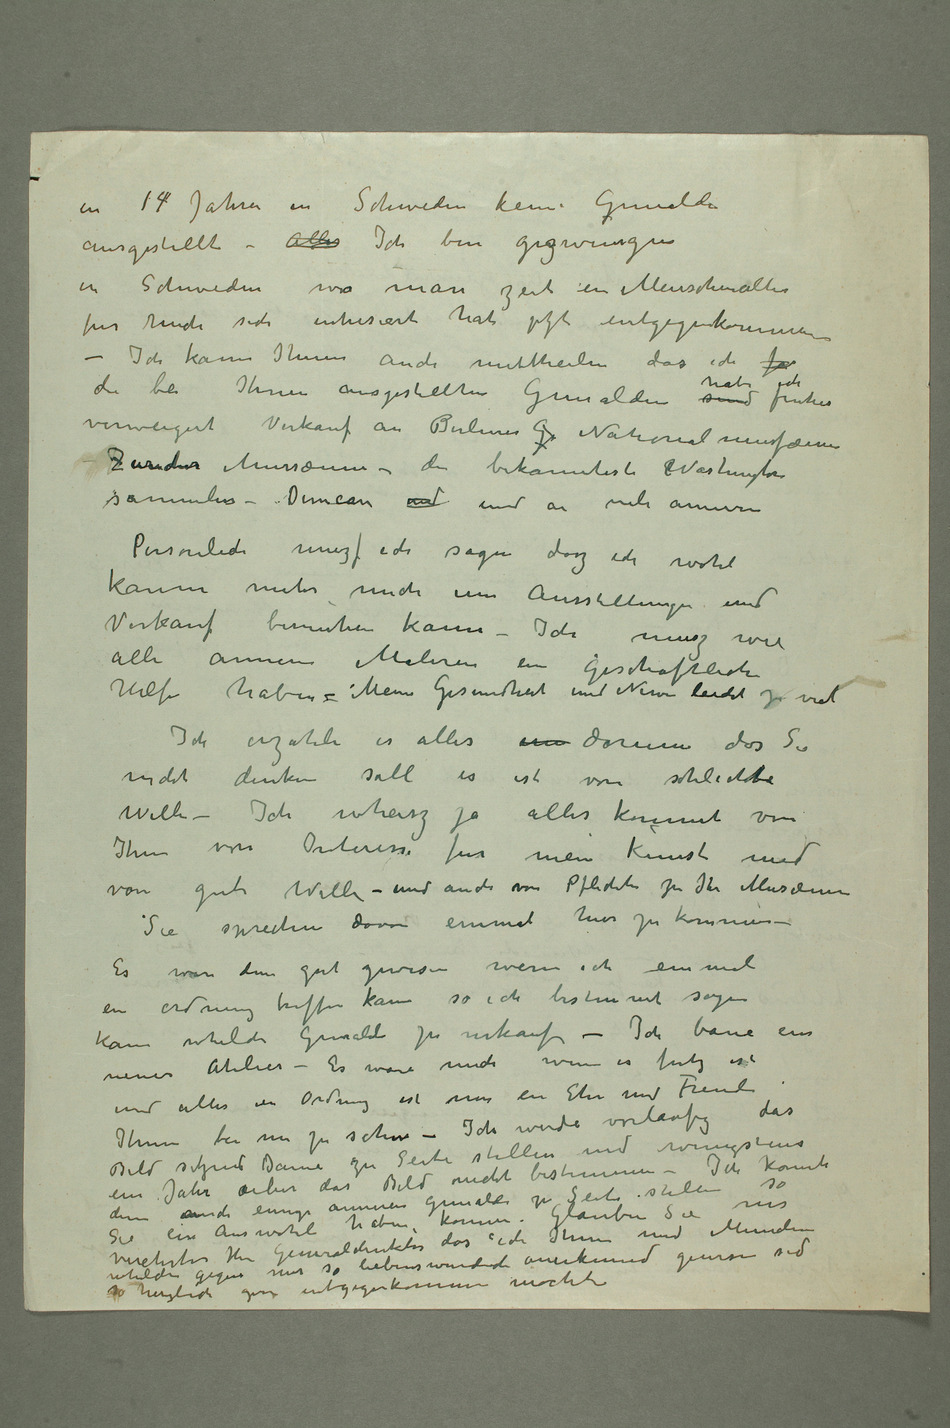 in 14 Jahren in Schweden keine Gemälde
ausgestellt – Alles Ich bin gezwungen
in Schweden wo man zeit ein Menschenalter
fur mich sich intresiert hat jetzt entgegenkommen
– Ich kann Ihnen auch mittheilen das ich
die bei Ihnen ausgestellten Gemälden sind habe ich früher
verweigert Verkauf an Berliner G Nationalmusæum
Züricher Musæum – die bekannteste Washington
sammler – Duncan und und an viele anneren
Personlich musz ich sagen dasz ich wohl
kaum mehr mich um Ausstellungen und
Verkauf bemühen kann – Ich musz wie
alle anneren Maleren ein geschäftliche
Hilfe haben – Meine Gesundheit und Nerven leidet zu viel
Ich erzähle es alles um darum das Sie
nicht denken soll es ist von schlechte
Wille – Ich wheisz ja alles kommt von
Ihnen von Interesse fur mein Kunst und
von gute Wille – und auch von Pflichte zu Ihr Musæum
Sie sprechen davon einmal hier zu kommen –
Es wäre dem gut gewesen wenn ich einmal
ein ordnung treffen kann so ich bestimmt sagen
kann whelche Gemälde zu verkaufen – Ich baue ein
neues Atelier – Es wäre mich wenn es fertig ist
und alles in Ordnung ist mir ein Ehre und Freude
Ihnen bei mir zu sehen – Ich werde vorläufig das
Bild sitzend Dame zu Seite stellen und wenigstens
ein Jahr über das Bild nicht bestimmen – Ich konnte
dem auch einige anneren Gemälde zu Seite stellen so
Sie ein Auswohl haben konnen. Glauben Sie mir
verehrter Herr Generaldirektor das ich Ihnen und München
whelche gegen mir so liebenswürdich anerkennend gewesen sid
so herzlich gern entgegenkommen mochte